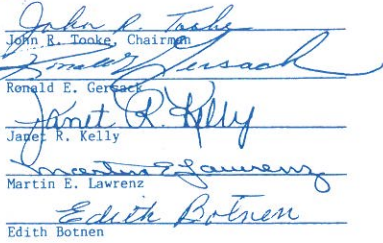 John R. Tooke
John R. Tooke, Chairman
Ronald E. Gersack
Ronald E. Gersack
Janet R. Kelly
Janet R. Kelly
Martin E. Lawrenz
Martin E. Lawrenz
Edith Botnen
Edith Botnen